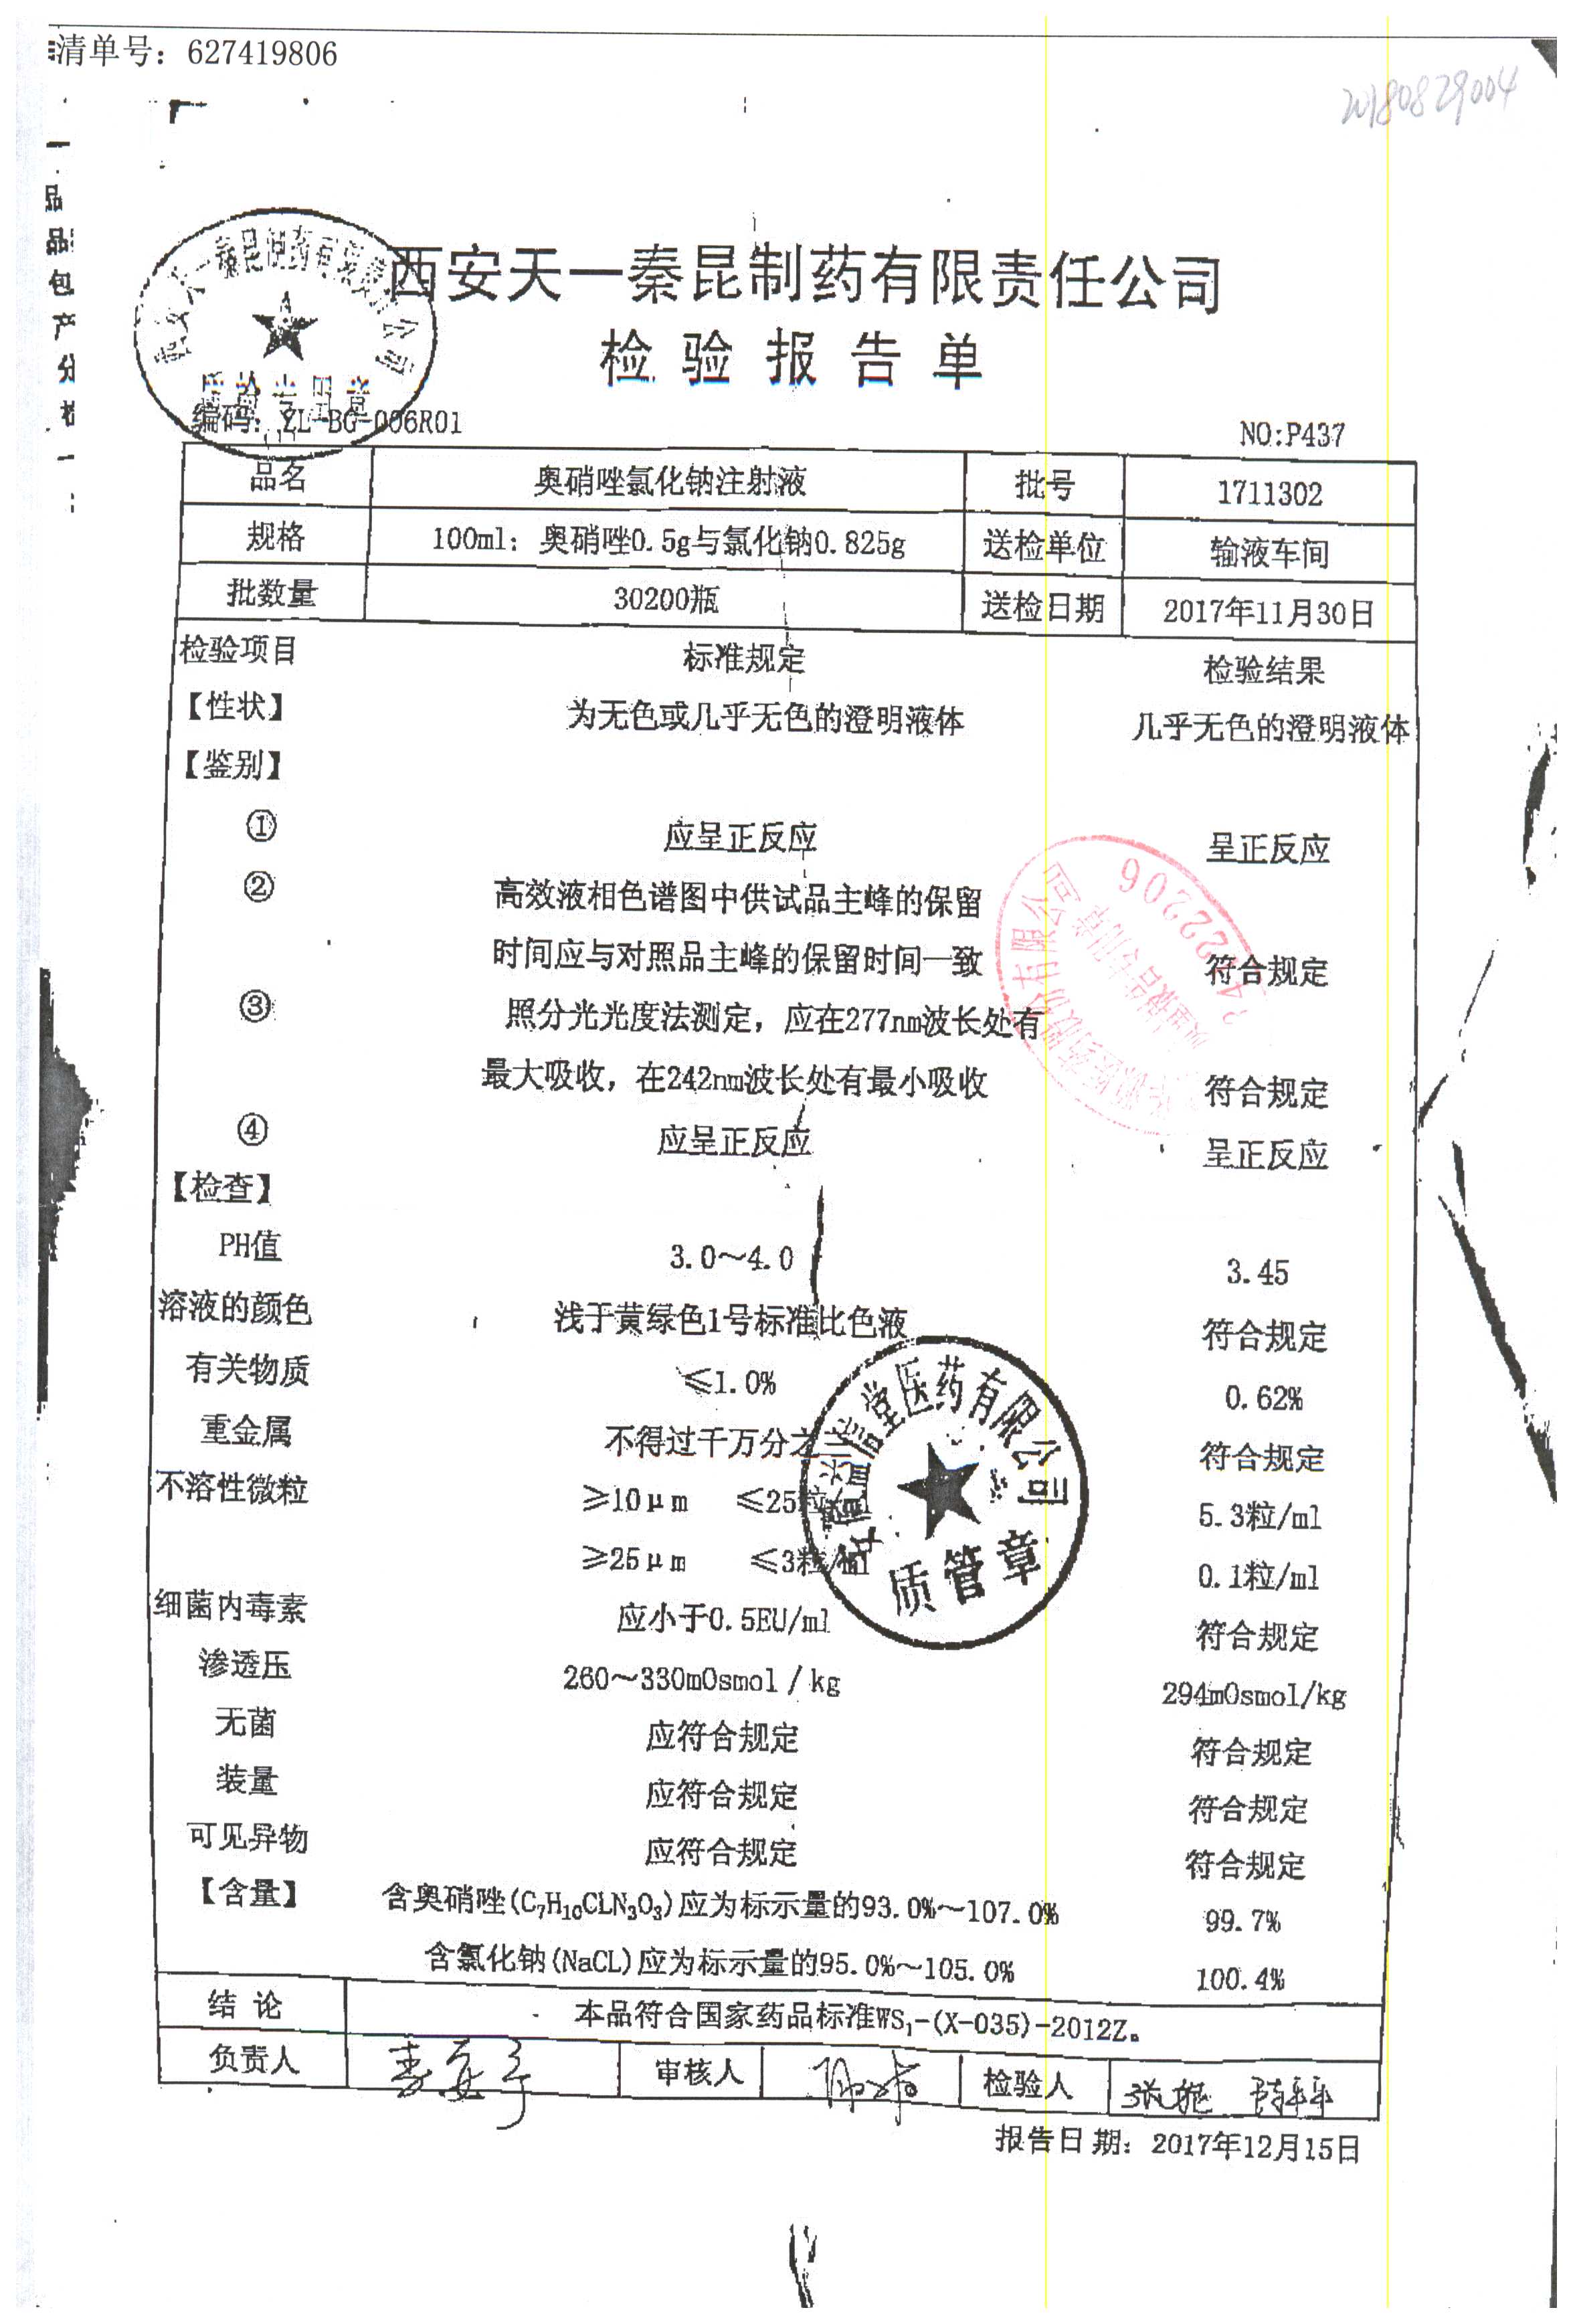 清单号：627419806
20180829004
西安天一秦昆制药有限责任公司
检验报告单
质检专用章
编码：ZL-BG-006R01
NO:P437
品名 奥硝唑氯化钠注射液 批号 1711302
规格 100ml：奥硝唑0.5g与氯化钠0.825g 送检单位 输液车间
批数量 30200瓶 送检日期 2017年11月30日
检验项目 标准规定 检验结果
【性状】 为无色或几乎无色的澄明液体 几乎无色的澄明液体
【鉴别】
① 应呈正反应 呈正反应
② 高效液相色谱图中供试品主峰的保留
时间应与对照品主峰的保留时间一致 符合规定
③ 照分光光度法测定，应在277nm波长处有
最大吸收，在242nm波长处有最小吸收 符合规定
④ 应呈正反应 呈正反应
【检查】
PH值 3.0～4.0 3.45
溶液的颜色 浅于黄绿色1号标准比色液 符合规定
有关物质 ≤1.0% 0.62%
重金属 不得过千万分之三 符合规定
不溶性微粒 ≥10μm ≤25粒/ml 5.3粒/ml
≥25μm ≤3粒/ml 0.1粒/ml
细菌内毒素 应小于0.5EU/ml 符合规定
渗透压 260～330mOsmol/kg 294mOsmol/kg
无菌 应符合规定 符合规定
装量 应符合规定 符合规定
可见异物 应符合规定 符合规定
【含量】 含奥硝唑(C₇H₁₀CLN₃O₃)应为标示量的93.0%～107.0% 99.7%
含氯化钠(NaCL)应为标示量的95.0%～105.0% 100.4%
质管章
结论 本品符合国家药品标准WS₁-(X-035)-2012Z。
负责人 审核人 检验人
报告日期：2017年12月15日